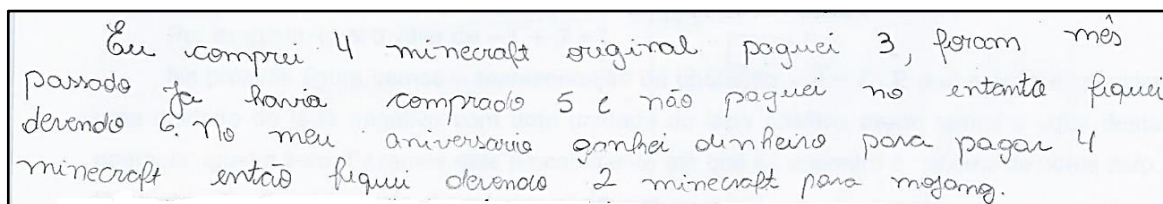 Eu comprei 4 minecraft original paguei 3, foram mês
passado ja havia comprado 5 e não paguei no entanto fiquei
devendo 6. No meu aniversario ganhei dinheiro para pagar 4
minecraft então fiquei devendo 2 minecraft para mojang.